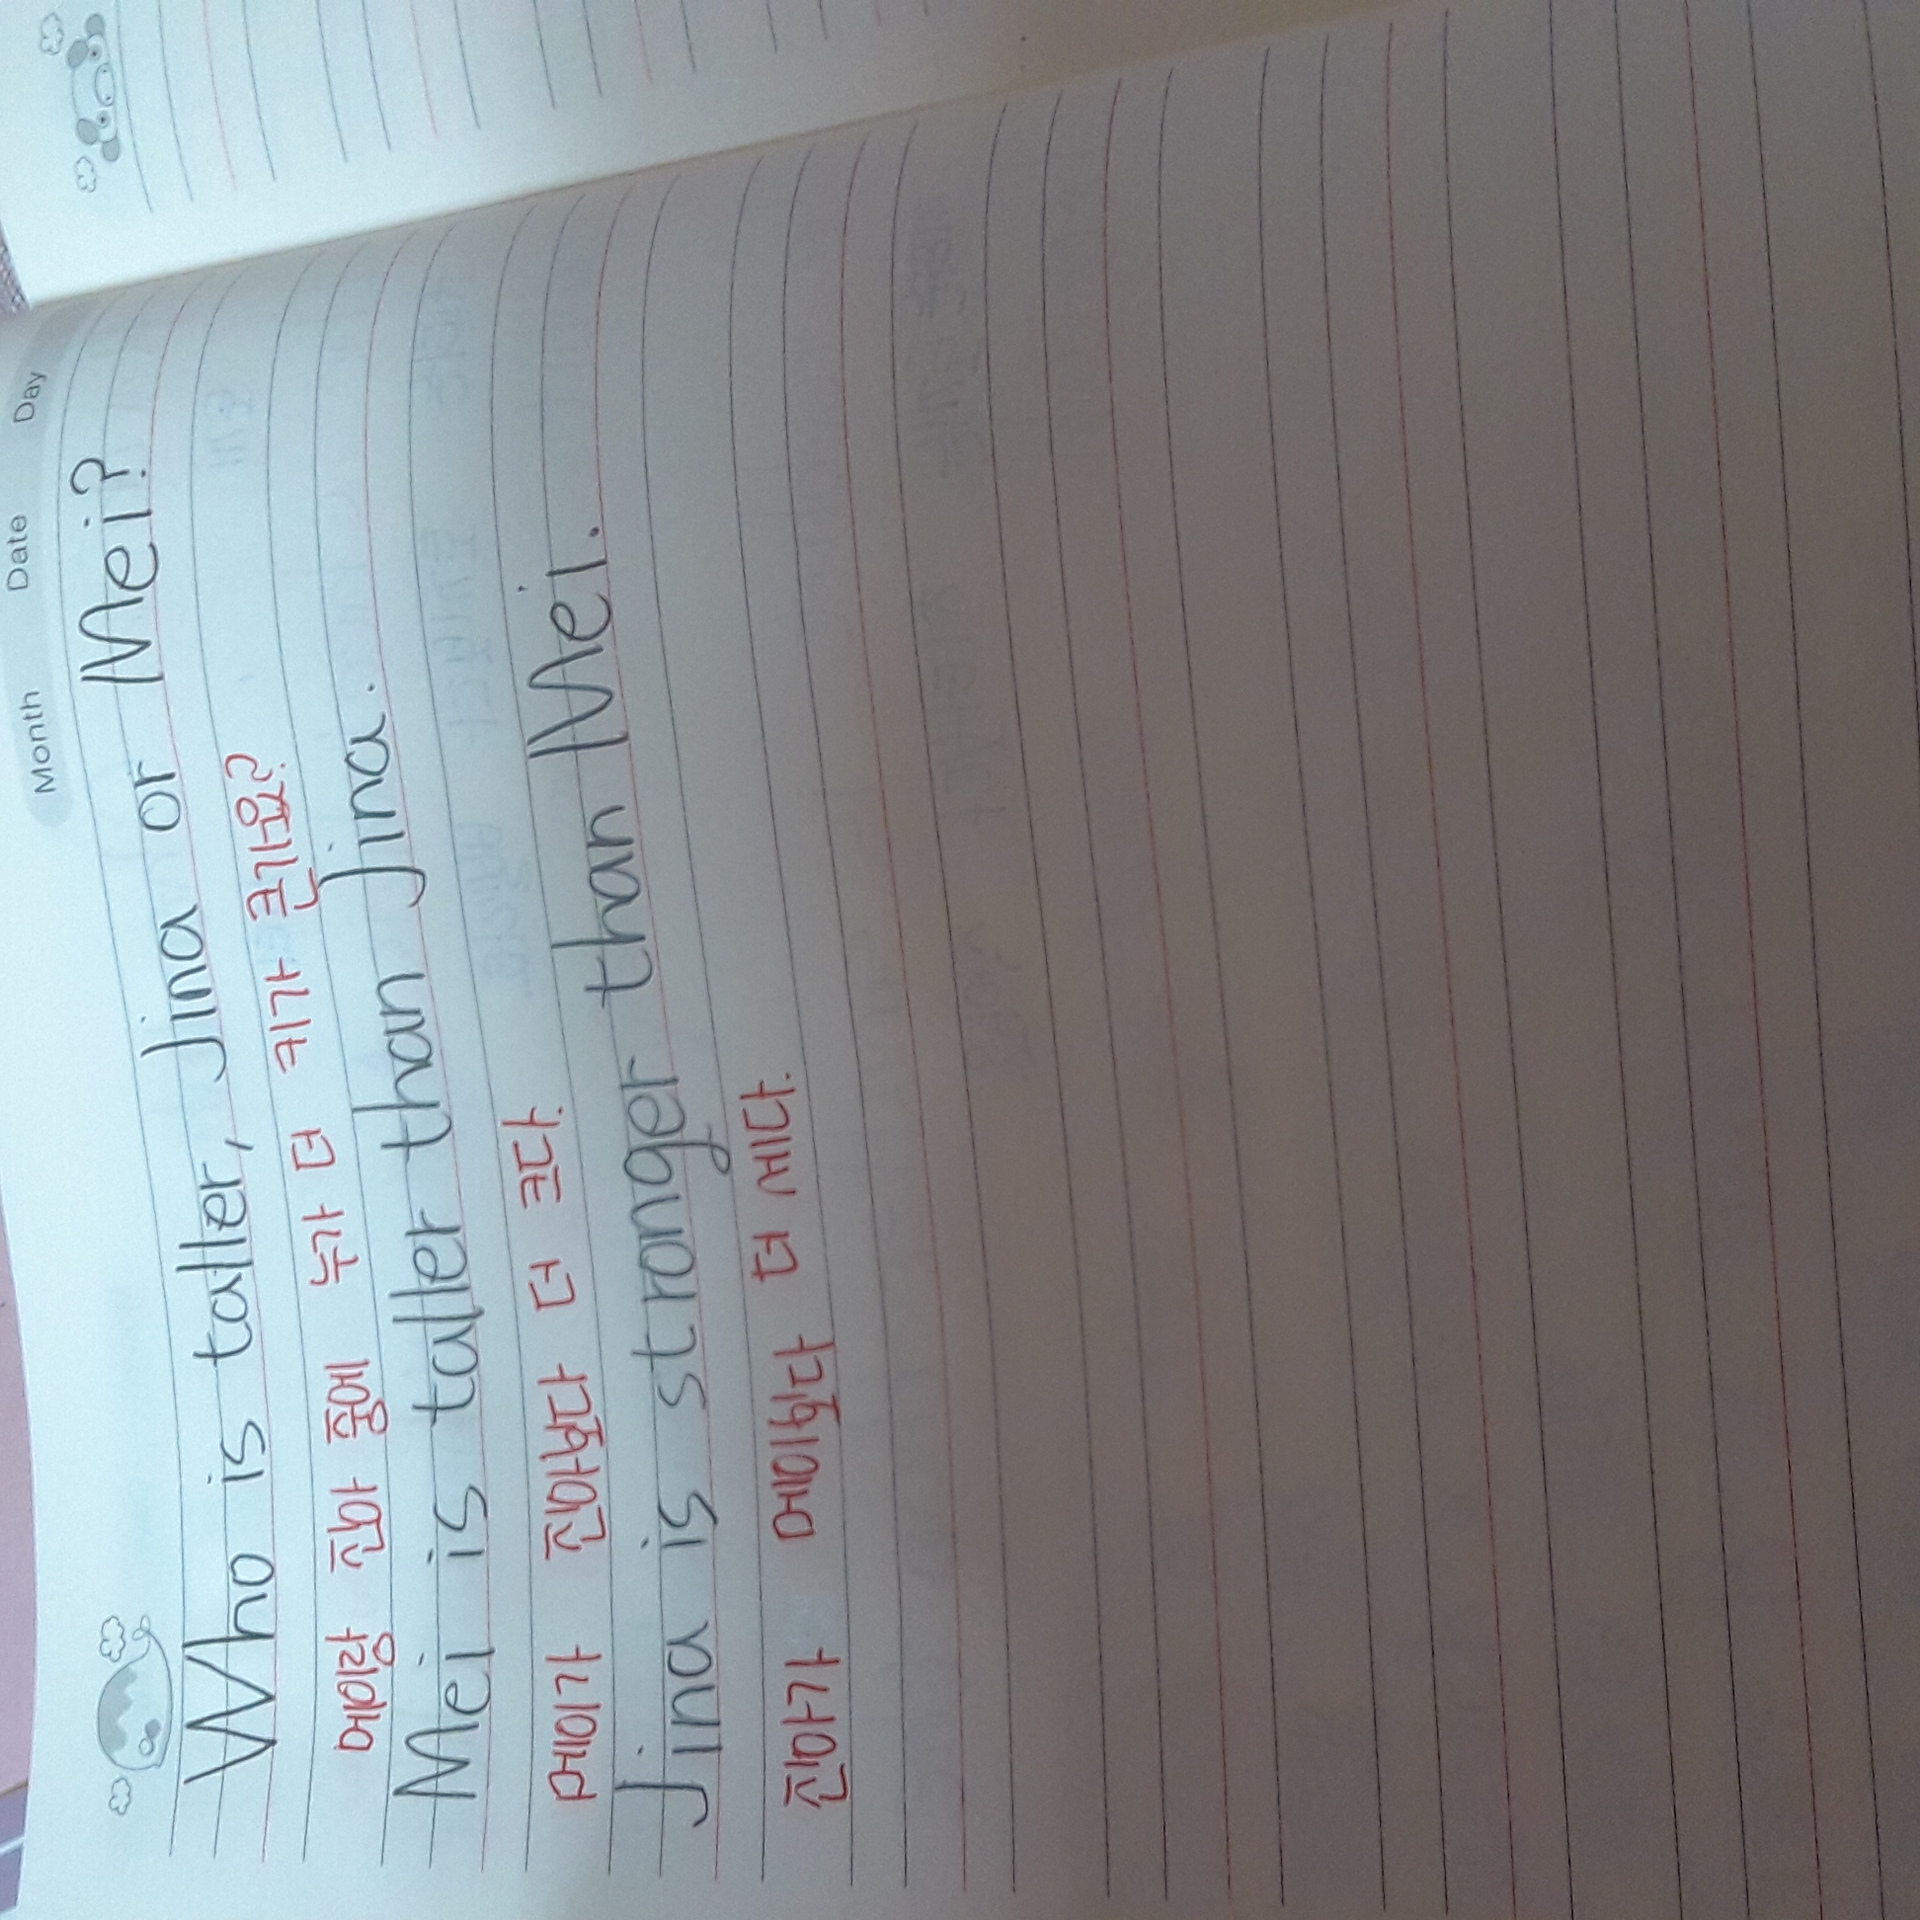 Month Date Day
Who is taller, Jina or Mei?
메이랑 진아 중에 누가 더 키가 큰가요?
Mei is taller than Jina.
메이가 진아보다 더 크다.
Jina is stronger than Mei.
진아가 메이보다 더 세다.